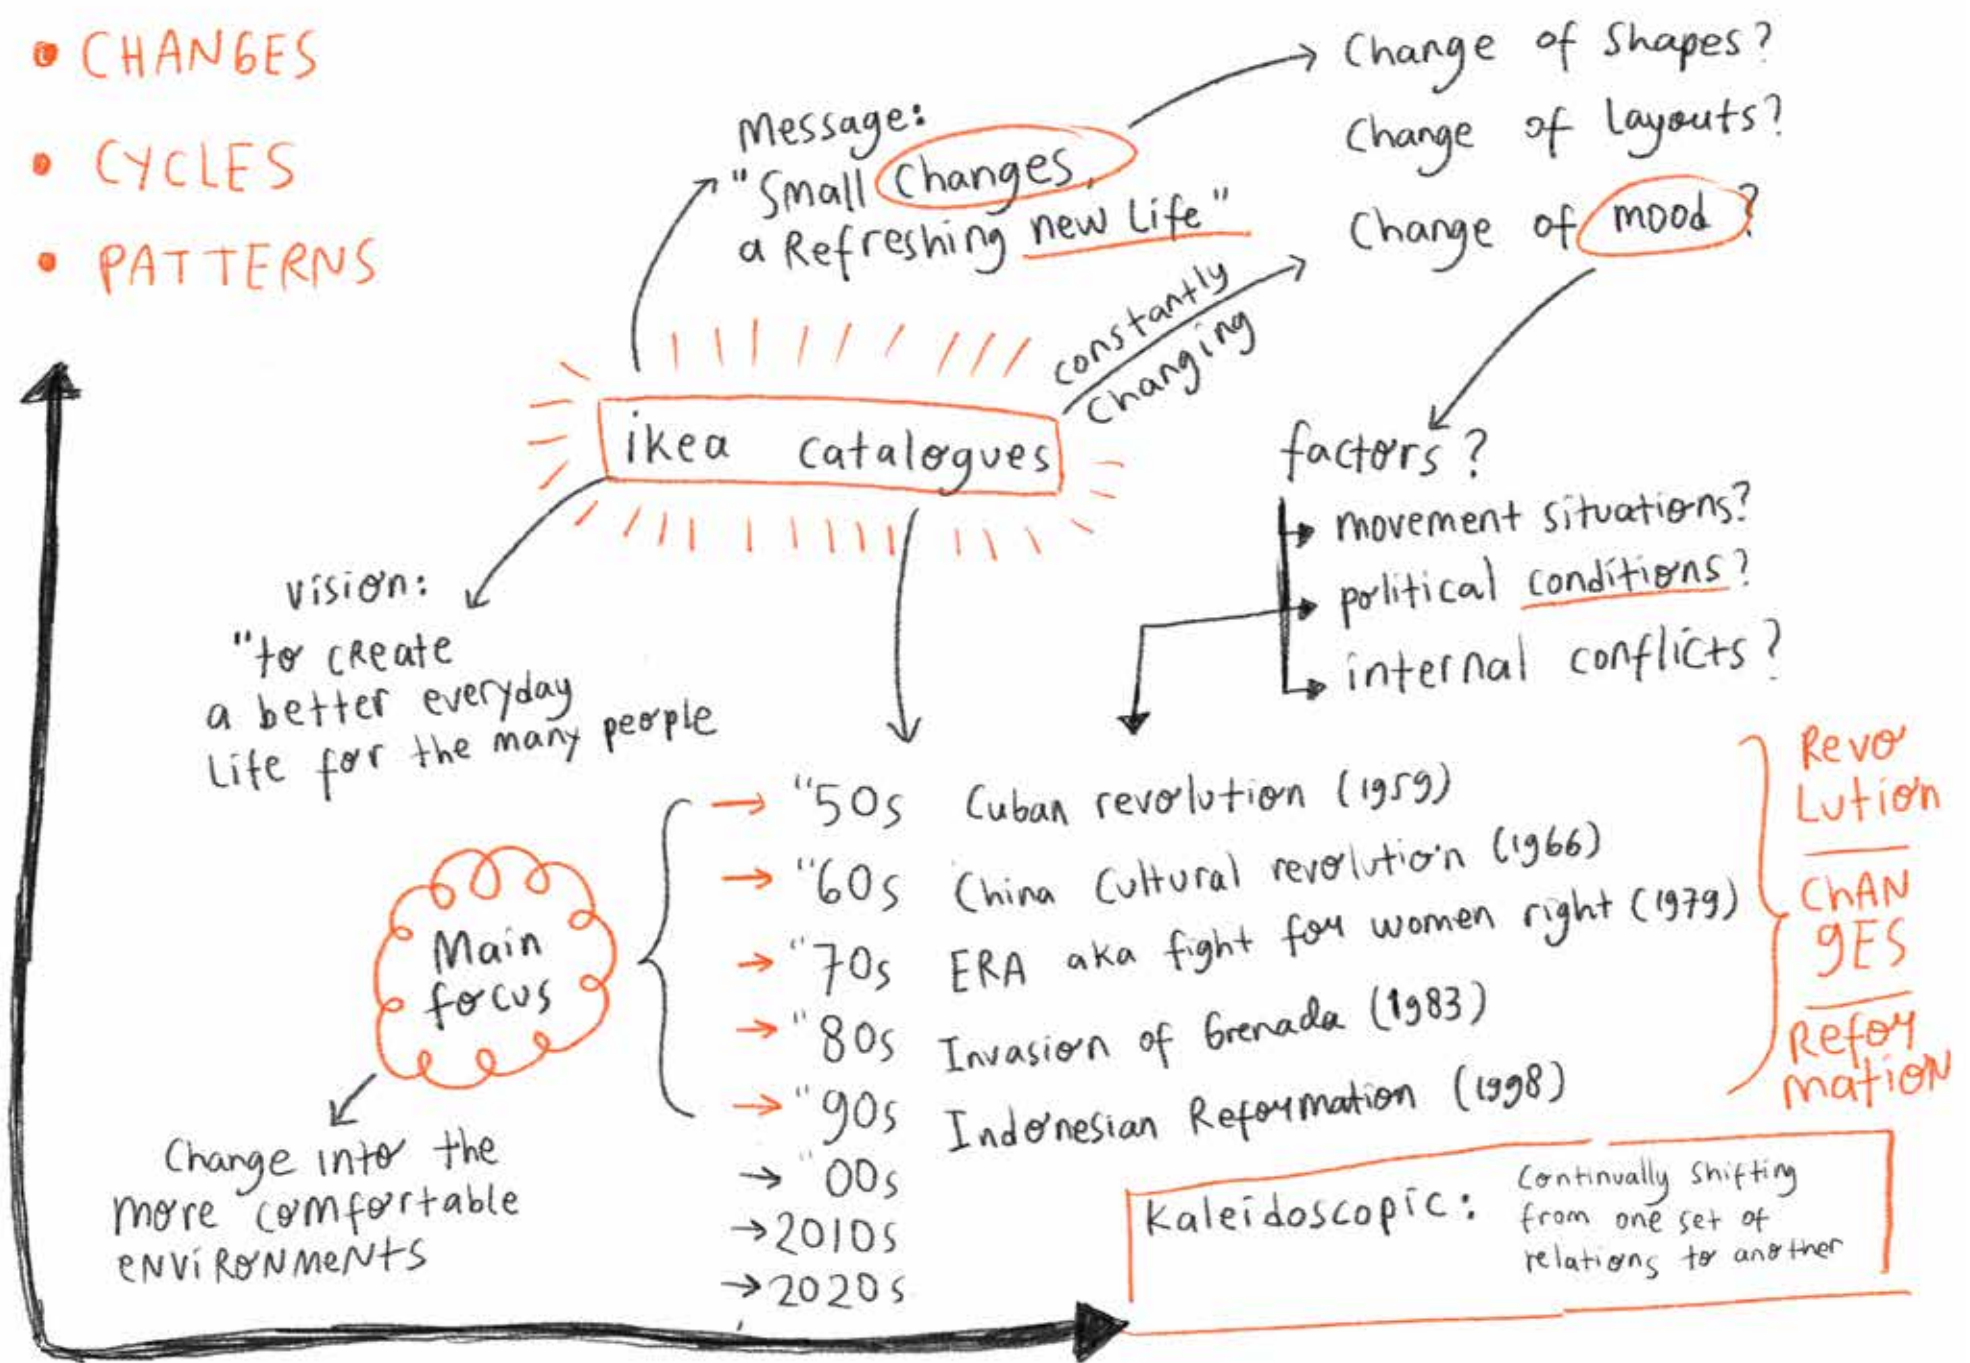 • CHANGES
• CYCLES
• PATTERNS
Message:
"Small Changes,
a Refreshing new Life"
Change of Shapes?
Change of Layouts?
Change of mood?
constantly
Changing
ikea catalogues
factors?
movement situations?
political conditions?
internal conflicts?
vision:
"to create
a better everyday
Life for the many people
Main
focus
Change into the
more comfortable
environments
"50s Cuban revolution (1959)
"60s China Cultural revolution (1966)
"70s ERA aka fight for women right (1979)
"80s Invasion of Grenada (1983)
"90s Indonesian Reformation (1998)
"00s
2010s
2020s
Revo
Lution
ChAN
gES
Refor
mation
Kaleidoscopic:
Continually Shifting
from one set of
relations to another